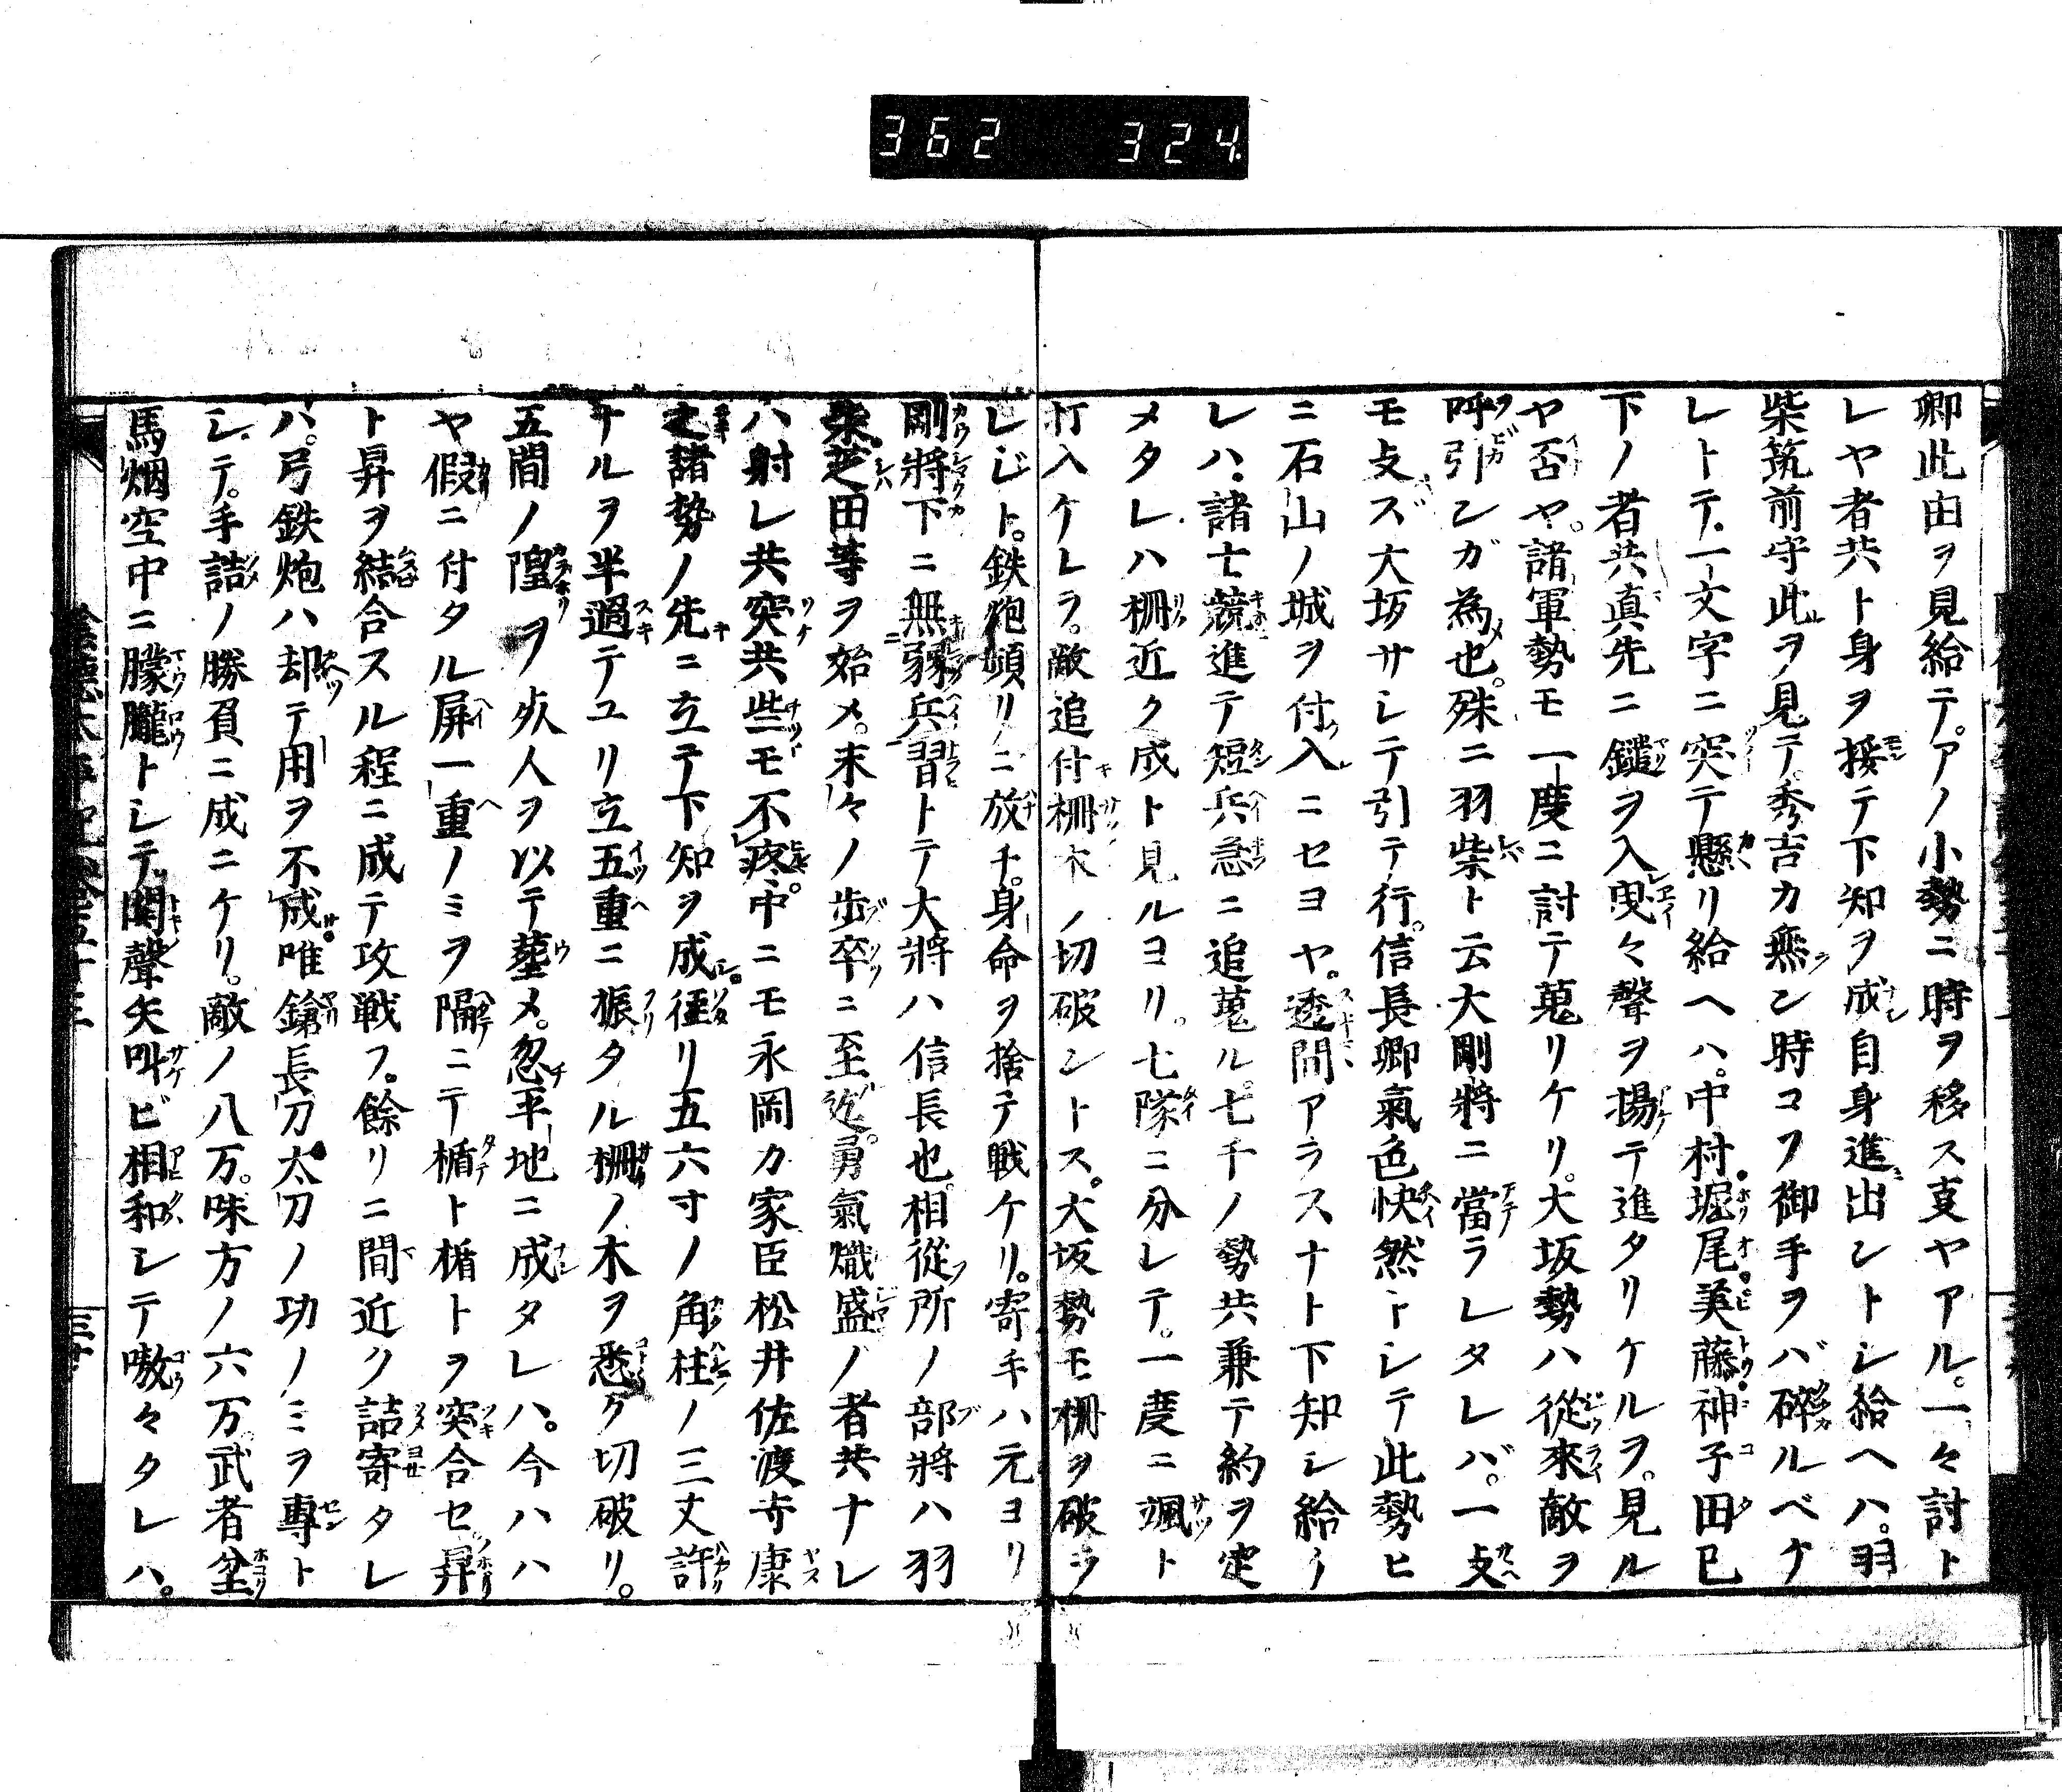 362 324
卿此由ヲ見給テ。アノ小勢ニ時ヲ移ス叓ヤアル。一々討ト
レヤ者共ト身ヲ接テ下知ヲ成自身進出ントシ給ヘハ。羽
柴筑前守此ヲ見テ。秀吉カ無ン時コソ御手ヲバ碎ルベケ
レトテ。一文字ニ突テ懸リ給ヘハ。中村堀尾美藤神子田已
下ノ者共真先ニ鑓ヲ入曳々聲ヲ揚テ進タリケルヲ。見ル
ヤ否ヤ。諸軍勢モ一度ニ討テ蒐リケリ。大坂勢ハ從來敵ヲ
呼引ンガ為也。殊ニ羽柴ト云大剛將ニ當ラレタレバ。一支
モ支ズ大坂サシテ引テ行。信長卿氣色快然トシテ此勢ヒ
ニ石山ノ城ヲ付入ニセヨヤ。透間アラスナト下知シ給ケ
レハ。諸士競進テ短兵急ニ追蒐ル。七千ノ勢共兼テ約ヲ定
メタレハ柵近ク成ト見ルヨリ。七隊ニ分レテ。一度ニ颯ト
打入ケレラ。敵追付柵木ノ切破ントス。大坂勢モ柵ヲ破ラ
レジト。鉄炮頻リニ放チ。身命ヲ捨テ戦ケリ。寄手ハ元ヨリ
剛將下ニ無弱兵習トテ大將ハ信長也。相從所ノ部將ハ羽
柴芝田等ヲ始メ。末々ノ歩卒ニ至迄。勇氣熾盛ノ者共ナレ
ハ射レ共突共些モ不疼。中ニモ永岡カ家臣松井佐渡守康
之諸勢ノ先ニ立テ下知ヲ成。徑リ五六寸ノ角柱ノ三丈許
ナルヲ半過テユリ立五重ニ振タル柵ノ木ヲ悉ク切破リ。
五間ノ隍ヲ夫人ヲ以テ塟メ。忽平地ニ成タレハ。今ハハ
ヤ假ニ付タル屏一重ノミヲ隔ニテ楯ト楯トヲ突合セ昇
ト昇ヲ結合スル程ニ成テ攻戦フ。餘リニ間近ク詰寄タレ
ハ。弓鉄炮ハ却テ用ヲ不成唯鎗長刀太刀ノ功ノミヲ專ト
シテ。手詰ノ勝負ニ成ニケリ。敵ノ八万。味方ノ六万。武者坌
馬烟空中ニ朦朧トシテ。鬨聲矢叫ビ相和シテ嗷々タレハ。